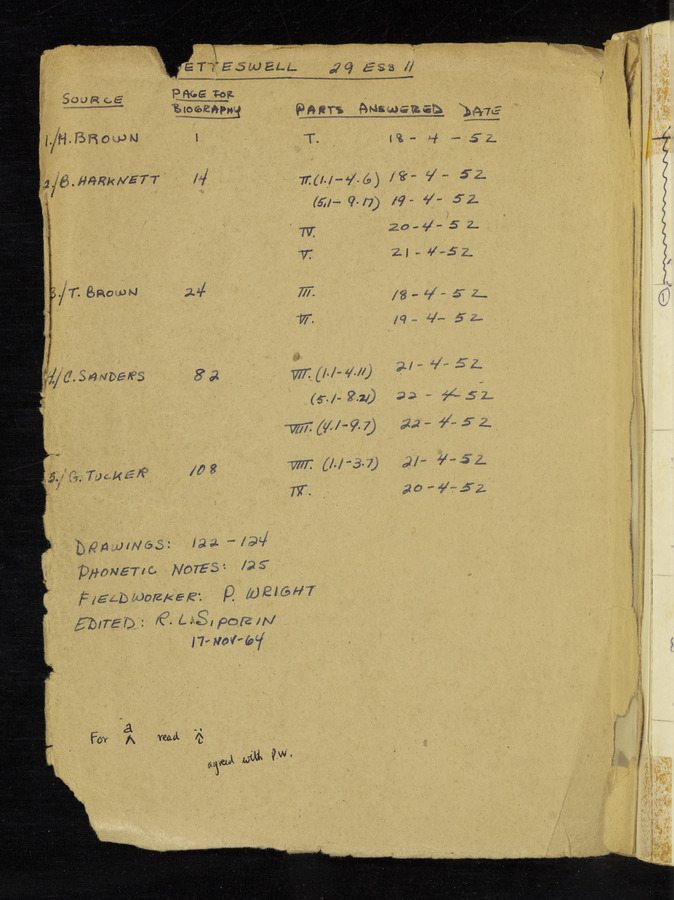 ETTESWELL 29 ESS 11
SOURCE PAGE FOR BIOGRAPHY PARTS ANSWERED DATE
1./H. BROWN 1 I. 18-4-52
2/B. HARKNETT 14 II.(1.1-4.6) 18-4-52
(5.1-9.17) 19-4-52
IV. 20-4-52
V. 21-4-52
3./T. BROWN 24 III. 18-4-52
VI. 19-4-52
4/C. SANDERS 82 VII.(1.1-4.11) 21-4-52
(5.1-8.21) 22-4-52
VIII.(4.1-9.7) 22-4-52
5./G. TUCKER 108 VIII. (1.1-3.7) 21-4-52
IX. 20-4-52
DRAWINGS: 122-124
PHONETIC NOTES: 125
FIELDWORKER: P. WRIGHT
EDITED: R. L. SIPORIN
17-NOV-64
For a ʌ read ï ʌ
agreed with P.W.